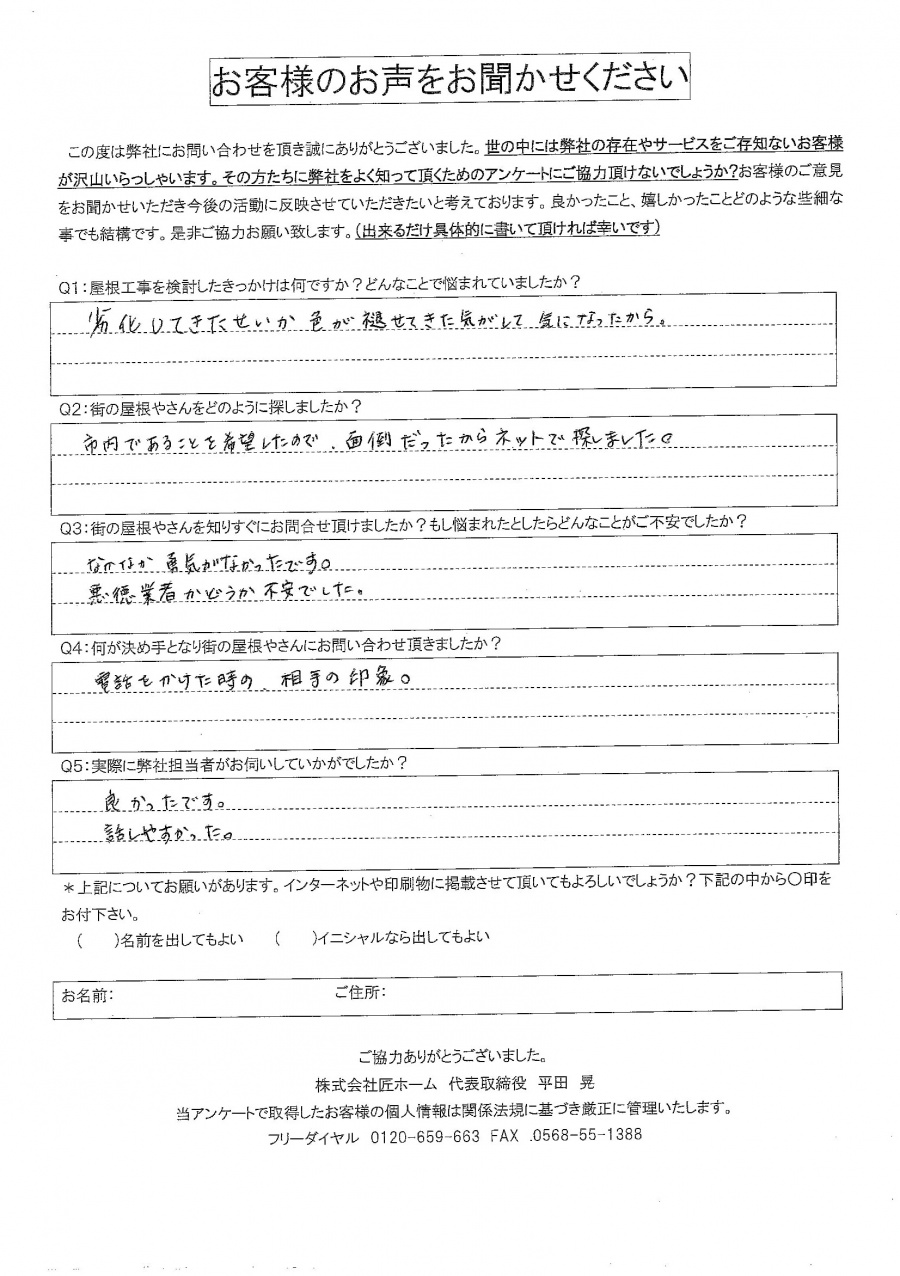 お客様のお声をお聞かせください
この度は弊社にお問い合わせを頂き誠にありがとうございました。世の中には弊社の存在やサービスをご存知ないお客様
が沢山いらっしゃいます。その方たちに弊社をよく知って頂くためのアンケートにご協力頂けないでしょうか?お客様のご意見
をお聞かせいただき今後の活動に反映させていただきたいと考えております。良かったこと、嬉しかったことどのような些細な
事でも結構です。是非ご協力お願い致します。(出来るだけ具体的に書いて頂ければ幸いです)
Q1:屋根工事を検討したきっかけは何ですか?どんなことで悩まれていましたか?
劣化してきたせいか色が褪せてきた気がして気になったから。
Q2:街の屋根やさんをどのように探しましたか?
市内であることを希望したので、面倒だったからネットで探しました。
Q3:街の屋根やさんを知りすぐにお問合せ頂けましたか?もし悩まれたとしたらどんなことがご不安でしたか?
なかなか勇気がなかったです。
悪徳業者かどうか不安でした。
Q4:何が決め手となり街の屋根やさんにお問い合わせ頂きましたか?
電話をかけた時の、相手の印象。
Q5:実際に弊社担当者がお伺いしていかがでしたか?
良かったです。
話しやすかった。
*上記についてお願いがあります。インターネットや印刷物に掲載させて頂いてもよろしいでしょうか?下記の中から○印を
お付下さい。
( )名前を出してもよい ( )イニシャルなら出してもよい
お名前: ご住所:
ご協力ありがとうございました。
株式会社匠ホーム 代表取締役 平田 晃
当アンケートで取得したお客様の個人情報は関係法規に基づき厳正に管理いたします。
フリーダイヤル 0120-659-663 FAX .0568-55-1388